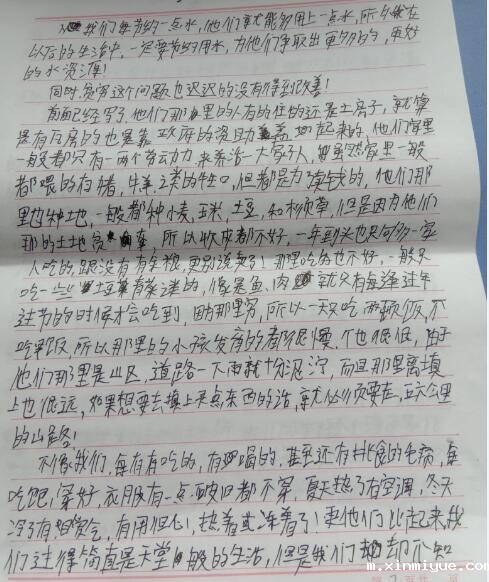 我们每节约一点水,他们就能够用上一点水,所以我在
以后的生活中,一定要节约用水,为他们争取出更多的,更好
的水资源!
同时,贫穷这个问题也迟迟的没有得到改善!
前面已经写了,他们那里的人有的住的还是土房子,就算
是有瓦房的也是靠政府的资助盖起来的,他们家里
一般都只有一两个劳动力来养活一大家子人,虽然家里一般
都喂的有猪,牛羊之类的牲口,但都是为卖钱的,他们那
里也种地,一般都种小麦,玉米,土豆,和草,但是因为他们
那的土地贫,所以收成都不好,一年到头也只何够一家
人吃的,跟没有有余粮,更别说卖了!那里吃的也不好,一般只
吃一些土豆青菜之类的,像是鱼,肉就只有每逢过年
过节的时候才会吃到,因为那里穷,所以一天只吃两顿饭,不
吃早饭,所以那里的小孩发育的都很慢,个也很低,由于
他们那里是山区,道路一下雨就十分泥泞,而且那里离镇
上也很远,如果想要去镇上买点东西的话,就必须要走五六公里
的山路!
不像我们,每有有吃的,有喝的,甚至还有挑食的毛病,每
吃饱,穿好,衣服有一点破旧都不穿,夏天热了有空调,冬天
冷了有暖气,有用担心!热着或冻着了!跟他们比起来,我
们过得简直是天堂般的生活,但是我们却不知
m.xinmiyue.com